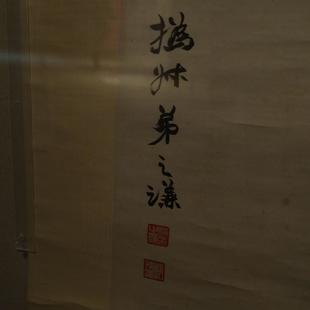 撝叔弟之謙